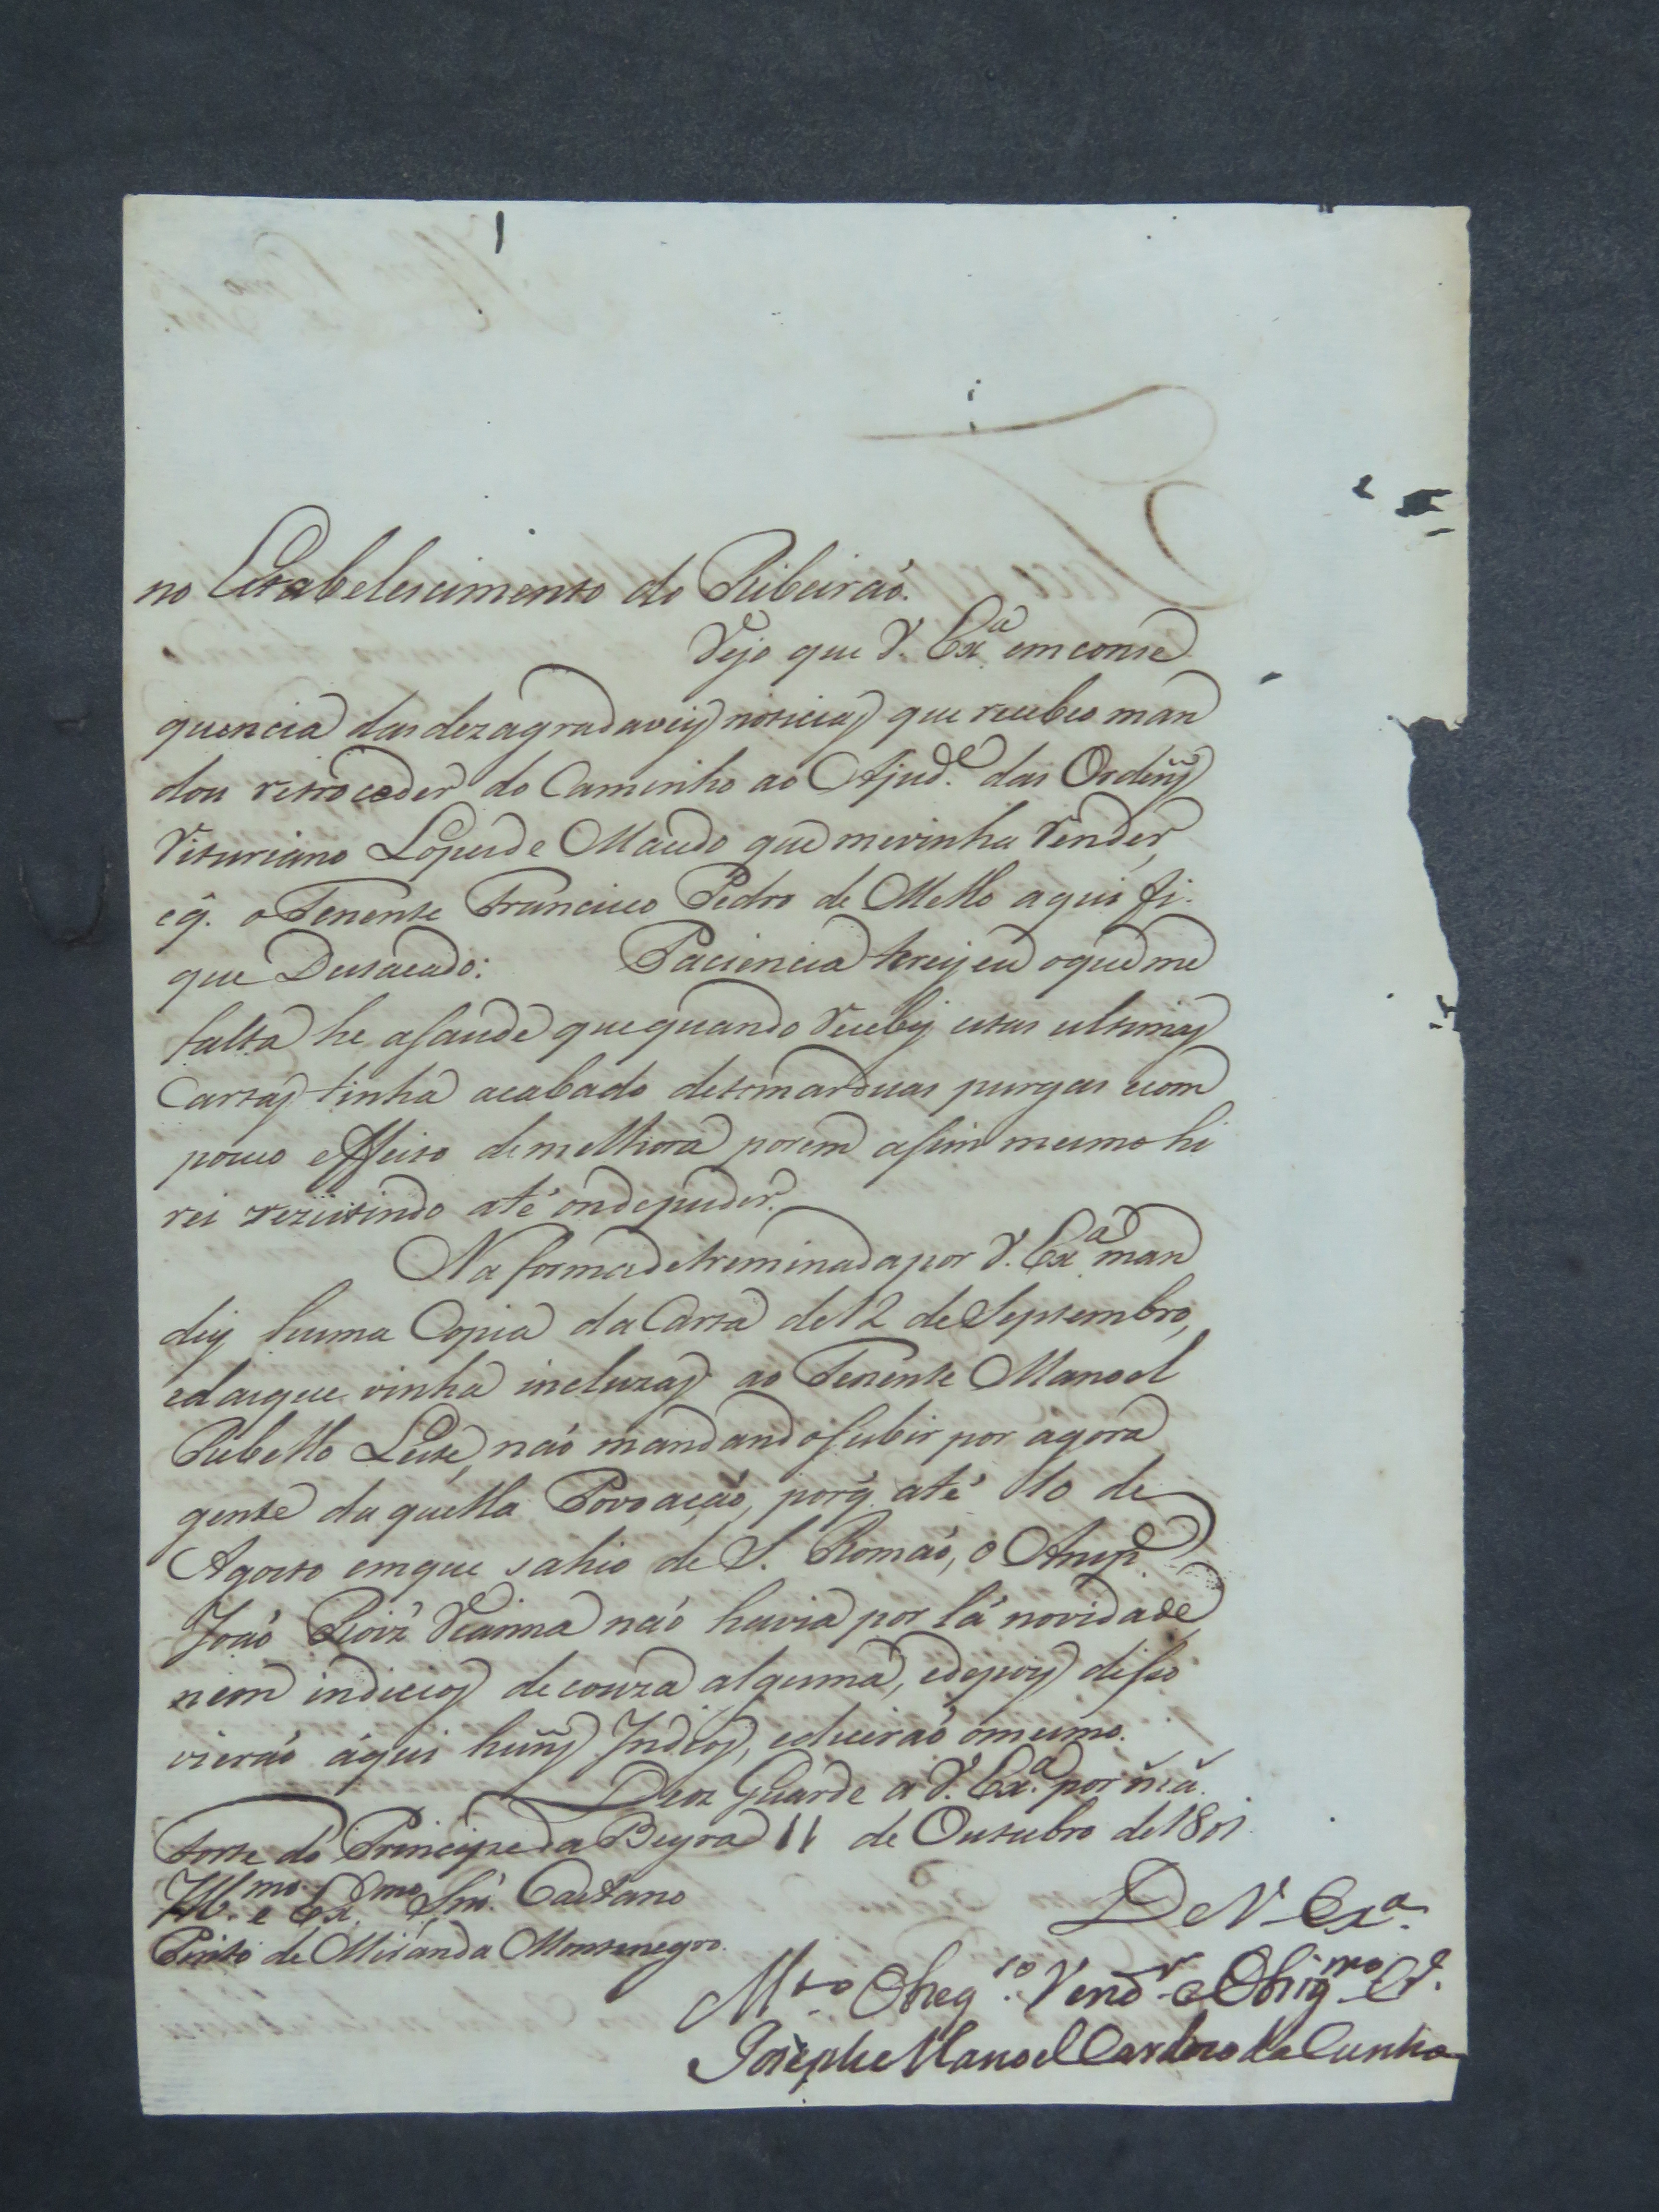 no Estabelescimento do Ribeiraó.
Vejo que V. Exª. em conse
quencia das dezagradaveis noticias que recebeo man
dou retroceder do Caminho ao Ajudᵉ. das Ordeñs
Vituriano Lopes de Macedo que me vinha render,
e q̃. o Tenente Francisco Pedro de Mello aqui fi-
que Destacado: Paciencia terey eu o que me
falta he a saude que quando recebij estas ultimas
Cartas tinha acabado de tomar duas purgas e com
pouco effeito de melhora porem asim mesmo hi
rei rezistindo até onde puder.
Na forma detreminada por V. Exª. man
dey huma Copia da Carta de 12 de Septembro,
e das que vinha incluzas ao Tenente Manoel
Rebello Leite, naó mandando subir por agora
gente da quella Povoaçaó, porq̃. até 10 de
Agosto em que sahio de S. Romaó, o Ansp.
Joaó Roiz' Vianna naó havia por lá novidade
nem indicios de couza alguma, e depois disso
vieraó áqui huñs Indios, e diceraó o mesmo.
Deoz Guarde a V. Exª. por m̃. ã.
Forte do Principe da Beyra 11 de Outubro de 1801
Illᵐᵒ. e Exᵐᵒ. Snr̃. Caetano
Pinto de Miranda Montenegro.
De V. Exª.
Mᵗᵒ. Obzegᵗᵒ. Venᵒʳ. e Obrigᵐᵒ. Cᵒ.
Joseph Manoel Cardozo da Cunha